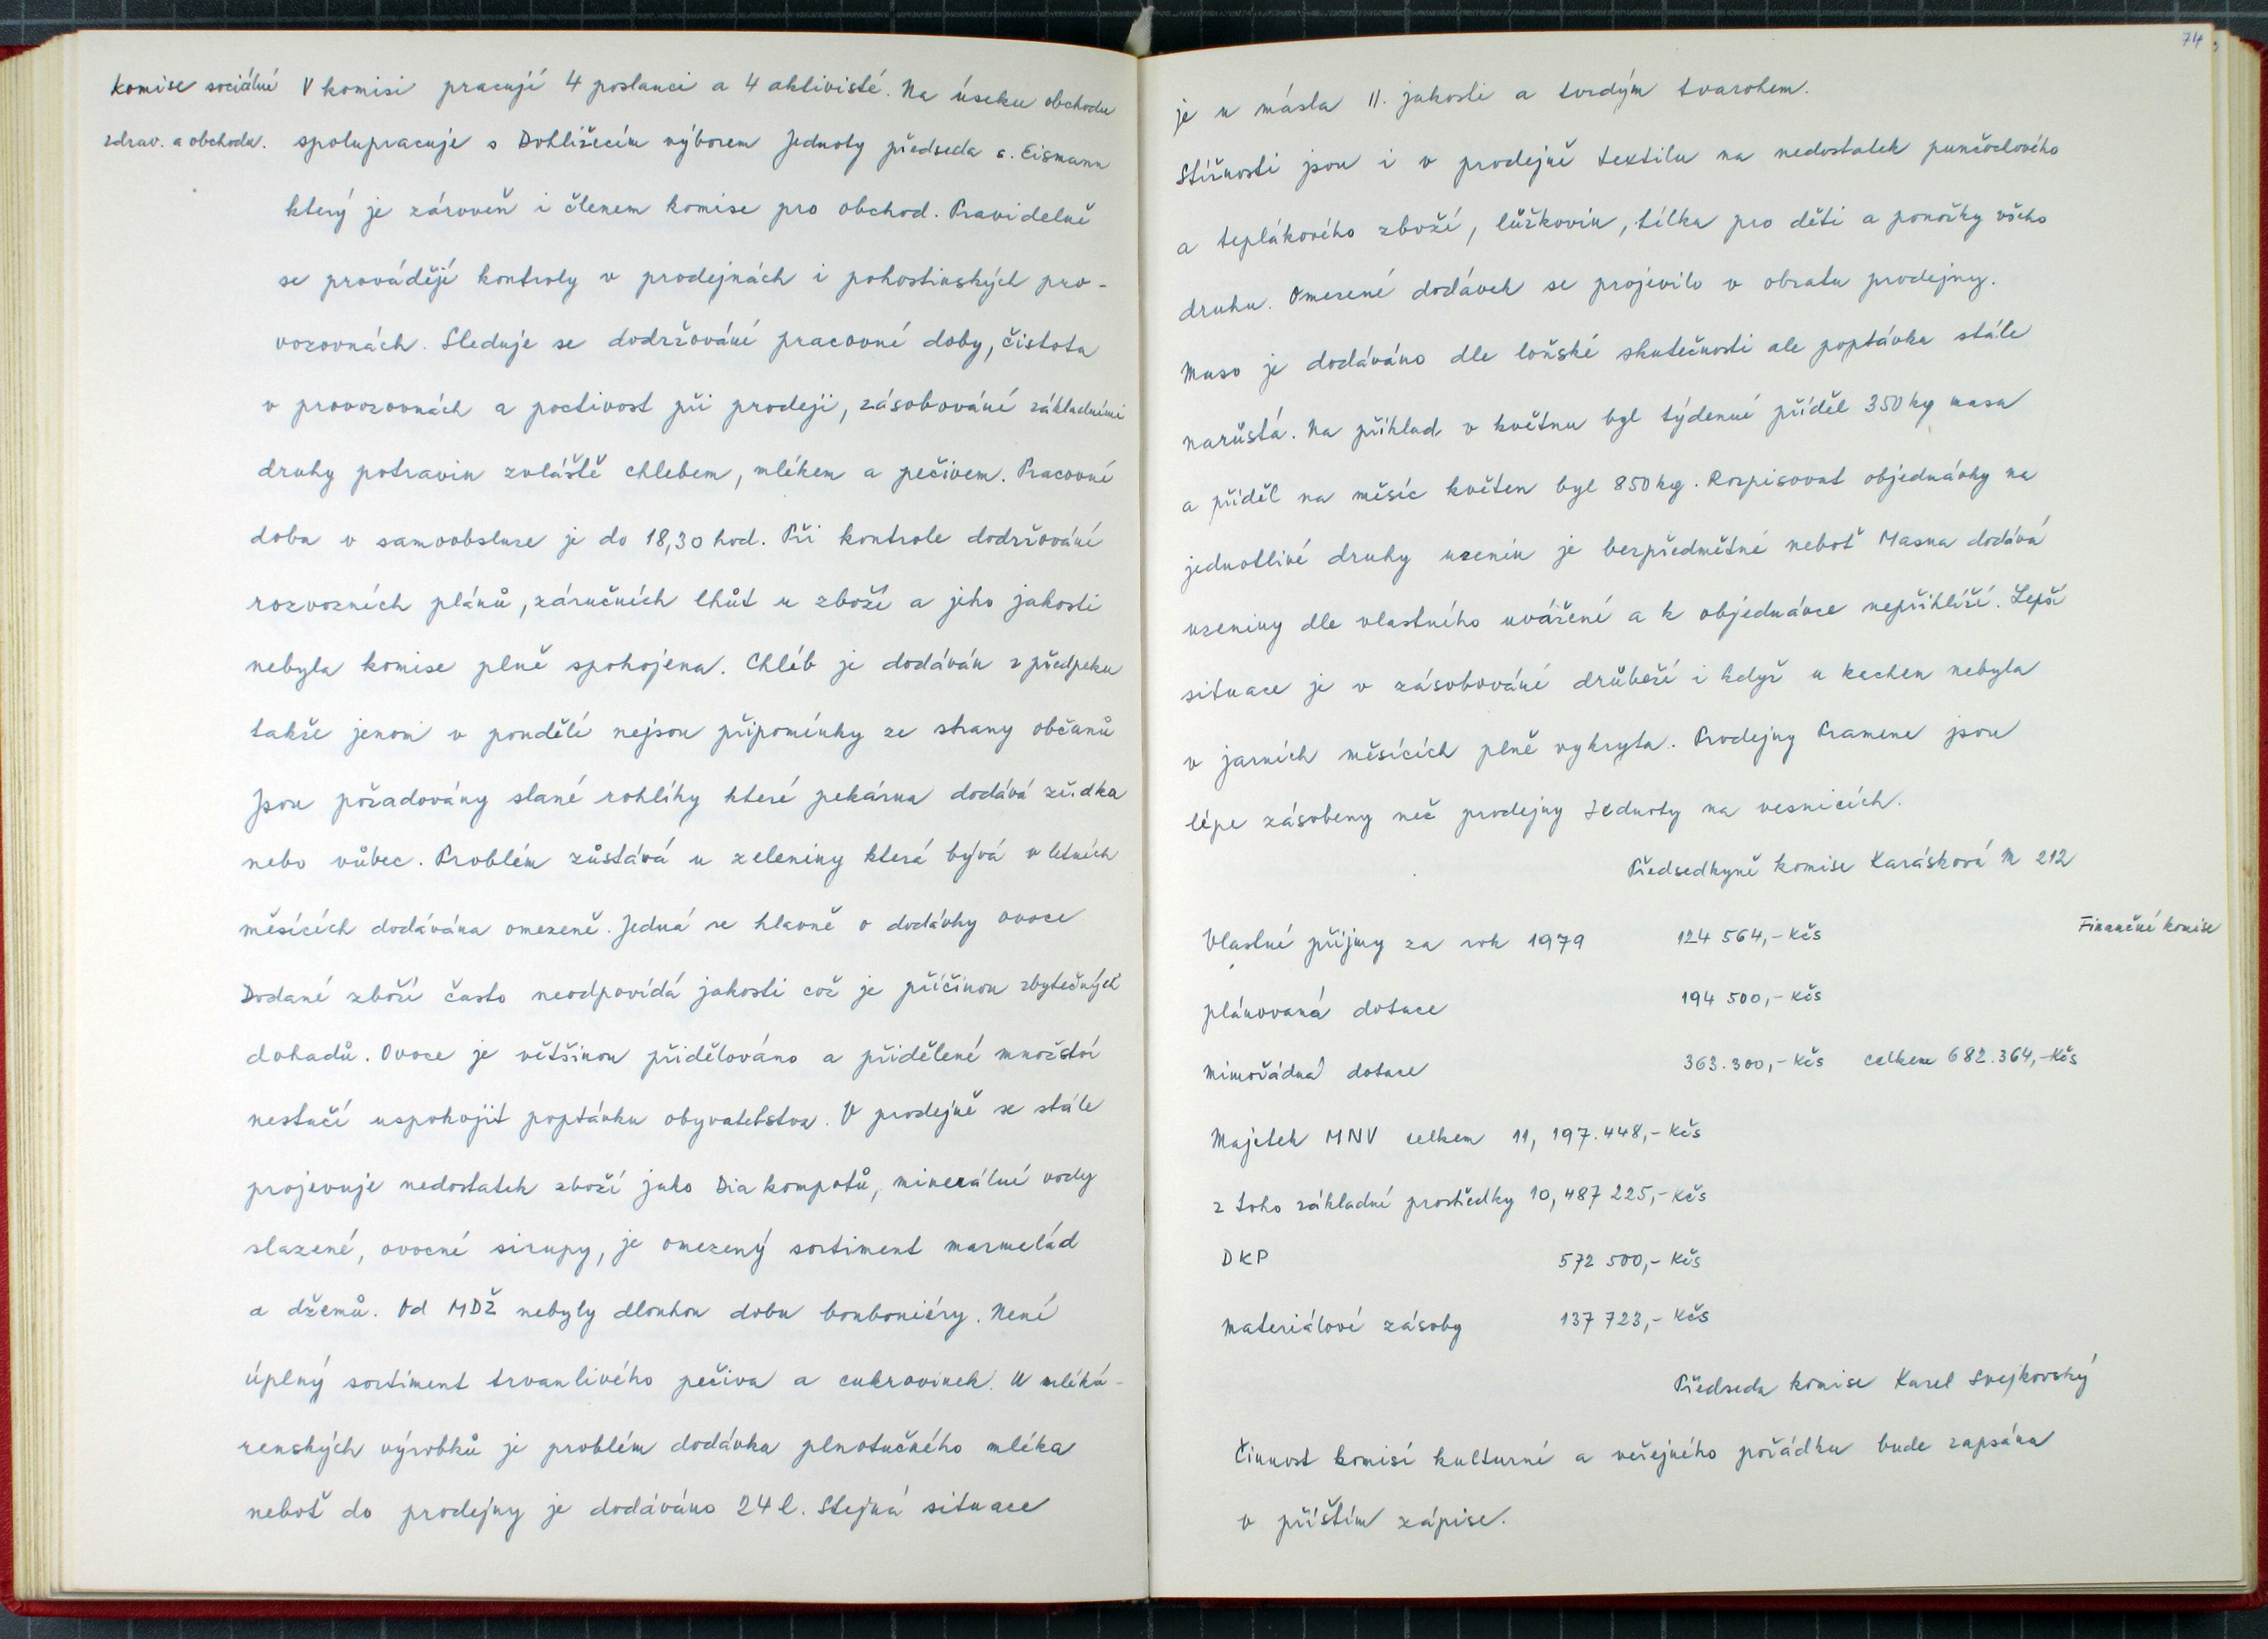 Komise sociálné
zdrav. a obchodu.
V komisi pracují 4 poslanci a 4 aktivisté. Na úseku obchodu
spolupracuje s Dohlížecím výborem Jednoty předseda s. Eismann
který je zároveň i členem komise pro obchod. Pravidelně
se provádějí kontroly v prodejnách i pohostinských pro-
vozovnách. Sleduje se dodržování pracovní doby, čistota
v provozovnách a poctivost při prodeji, zásobování základními
druhy potravin zvláště chlebem, mlékem a pečivem. Pracovní
doba v samoobsluze je do 18,30 hod. Při kontrole dodržování
rozvozních plánů, záručních lhůt u zboží a jeho jakosti
nebyla komise plně spokojena. Chléb je dodáván z předpeku
takže jenom v pondělí nejsou připomínky ze strany občanů
Jsou požadovány slané rohlíky které pekárna dodává zřídka
nebo vůbec. Problém zůstává u zeleniny která bývá v letních
měsících dodávána omezeně. Jedná se hlavně o dodávky ovoce
Dodané zboží často neodpovídá jakosti což je příčinou zbytečných
dohadů. Ovoce je většinou přidělováno a přidělené množství
nestačí uspokojit poptávku obyvatelstva. V prodejně se stále
projevuje nedostatek zboží jako Dia kompotů, minerální vody
slazené, ovocné sirupy, je omezený sortiment marmelád
a džemů. Od MDŽ nebyly dlouhou dobu bonboniéry. Není
úplný sortiment trvanlivého pečiva a cukrovinek. U mléká-
renských výrobků je problém dodávka plnotučného mléka
neboť do prodejny je dodáváno 24 l. Stejná situace
74
je u másla II. jakosti a tvrdým tvarohem.
Stížnosti jsou i v prodejně textilu na nedostatek punčochového
a teplákového zboží, lůžkovin, tílka pro děti a ponožky všeho
druhu. Omezené dodávek se projevilo v obratu prodejny.
Maso je dodáváno dle loňské skutečnosti ale poptávka stále
narůstá. Na příklad v květnu byl týdenní příděl 350 kg masa
a příděl na měsíc květen byl 850 kg. Rozpisovat objednávky na
jednotlivé druhy uzenin je bezpředmětné neboť Masna dodává
uzeniny dle vlastního uvážení a k objednávce nepřihlíží. Lepší
situace je v zásobování drůbeží i když u kachen nebyla
v jarních měsících plně vykryta. Prodejny Pramene jsou
lépe zásobeny než prodejny Jednoty na vesnicích.
Předsedkyně komise Karásková M 212
Finanční komise
Vlastní příjmy za rok 1979 124 564,- Kčs
plánovaná dotace 194 500,- Kčs
Mimořádná dotace 363.300,- Kčs celkem 682.364,- Kčs
Majetek MNV celkem 11, 197.448,- Kčs
z toho základní prostředky 10, 487 225,- Kčs
DKP 572 500,- Kčs
Materiálové zásoby 137 723,- Kčs
Předseda komise Karel Svejkovský
Činnost komisí kulturní a veřejného pořádku bude zapsána
v příštím zápise.